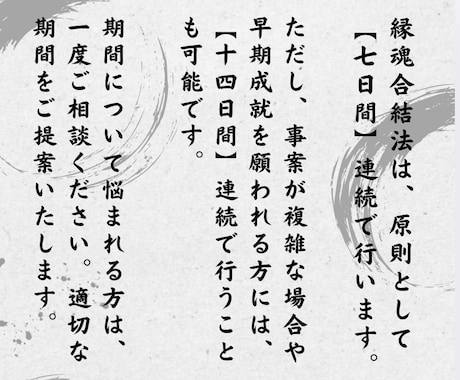 縁魂合結法は、原則として
【七日間】連続で行います。
ただし、事案が複雑な場合や
早期成就を願われる方には、
【十四日間】連続で行うこと
も可能です。
期間について悩まれる方は、
一度ご相談ください。適切な
期間をご提案いたします。